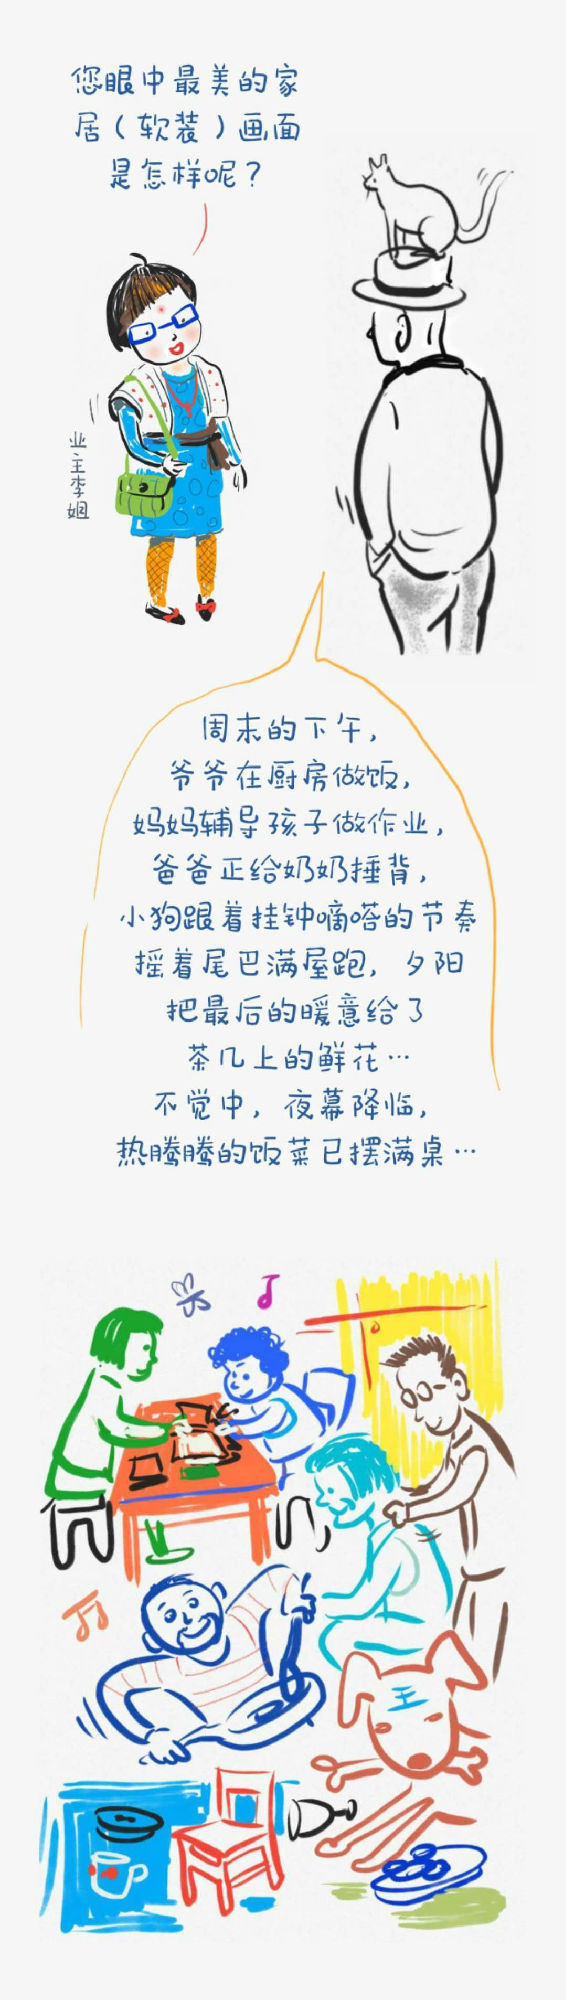 您眼中最美的家
居（软装）画面
是怎样呢？
业主李姐
周末的下午，
爷爷在厨房做饭，
妈妈辅导孩子做作业，
爸爸正给奶奶捶背，
小狗跟着挂钟嘀嗒的节奏
摇着尾巴满屋跑，夕阳
把最后的暖意给了
茶几上的鲜花…
不觉中，夜幕降临，
热腾腾的饭菜已摆满桌…
王